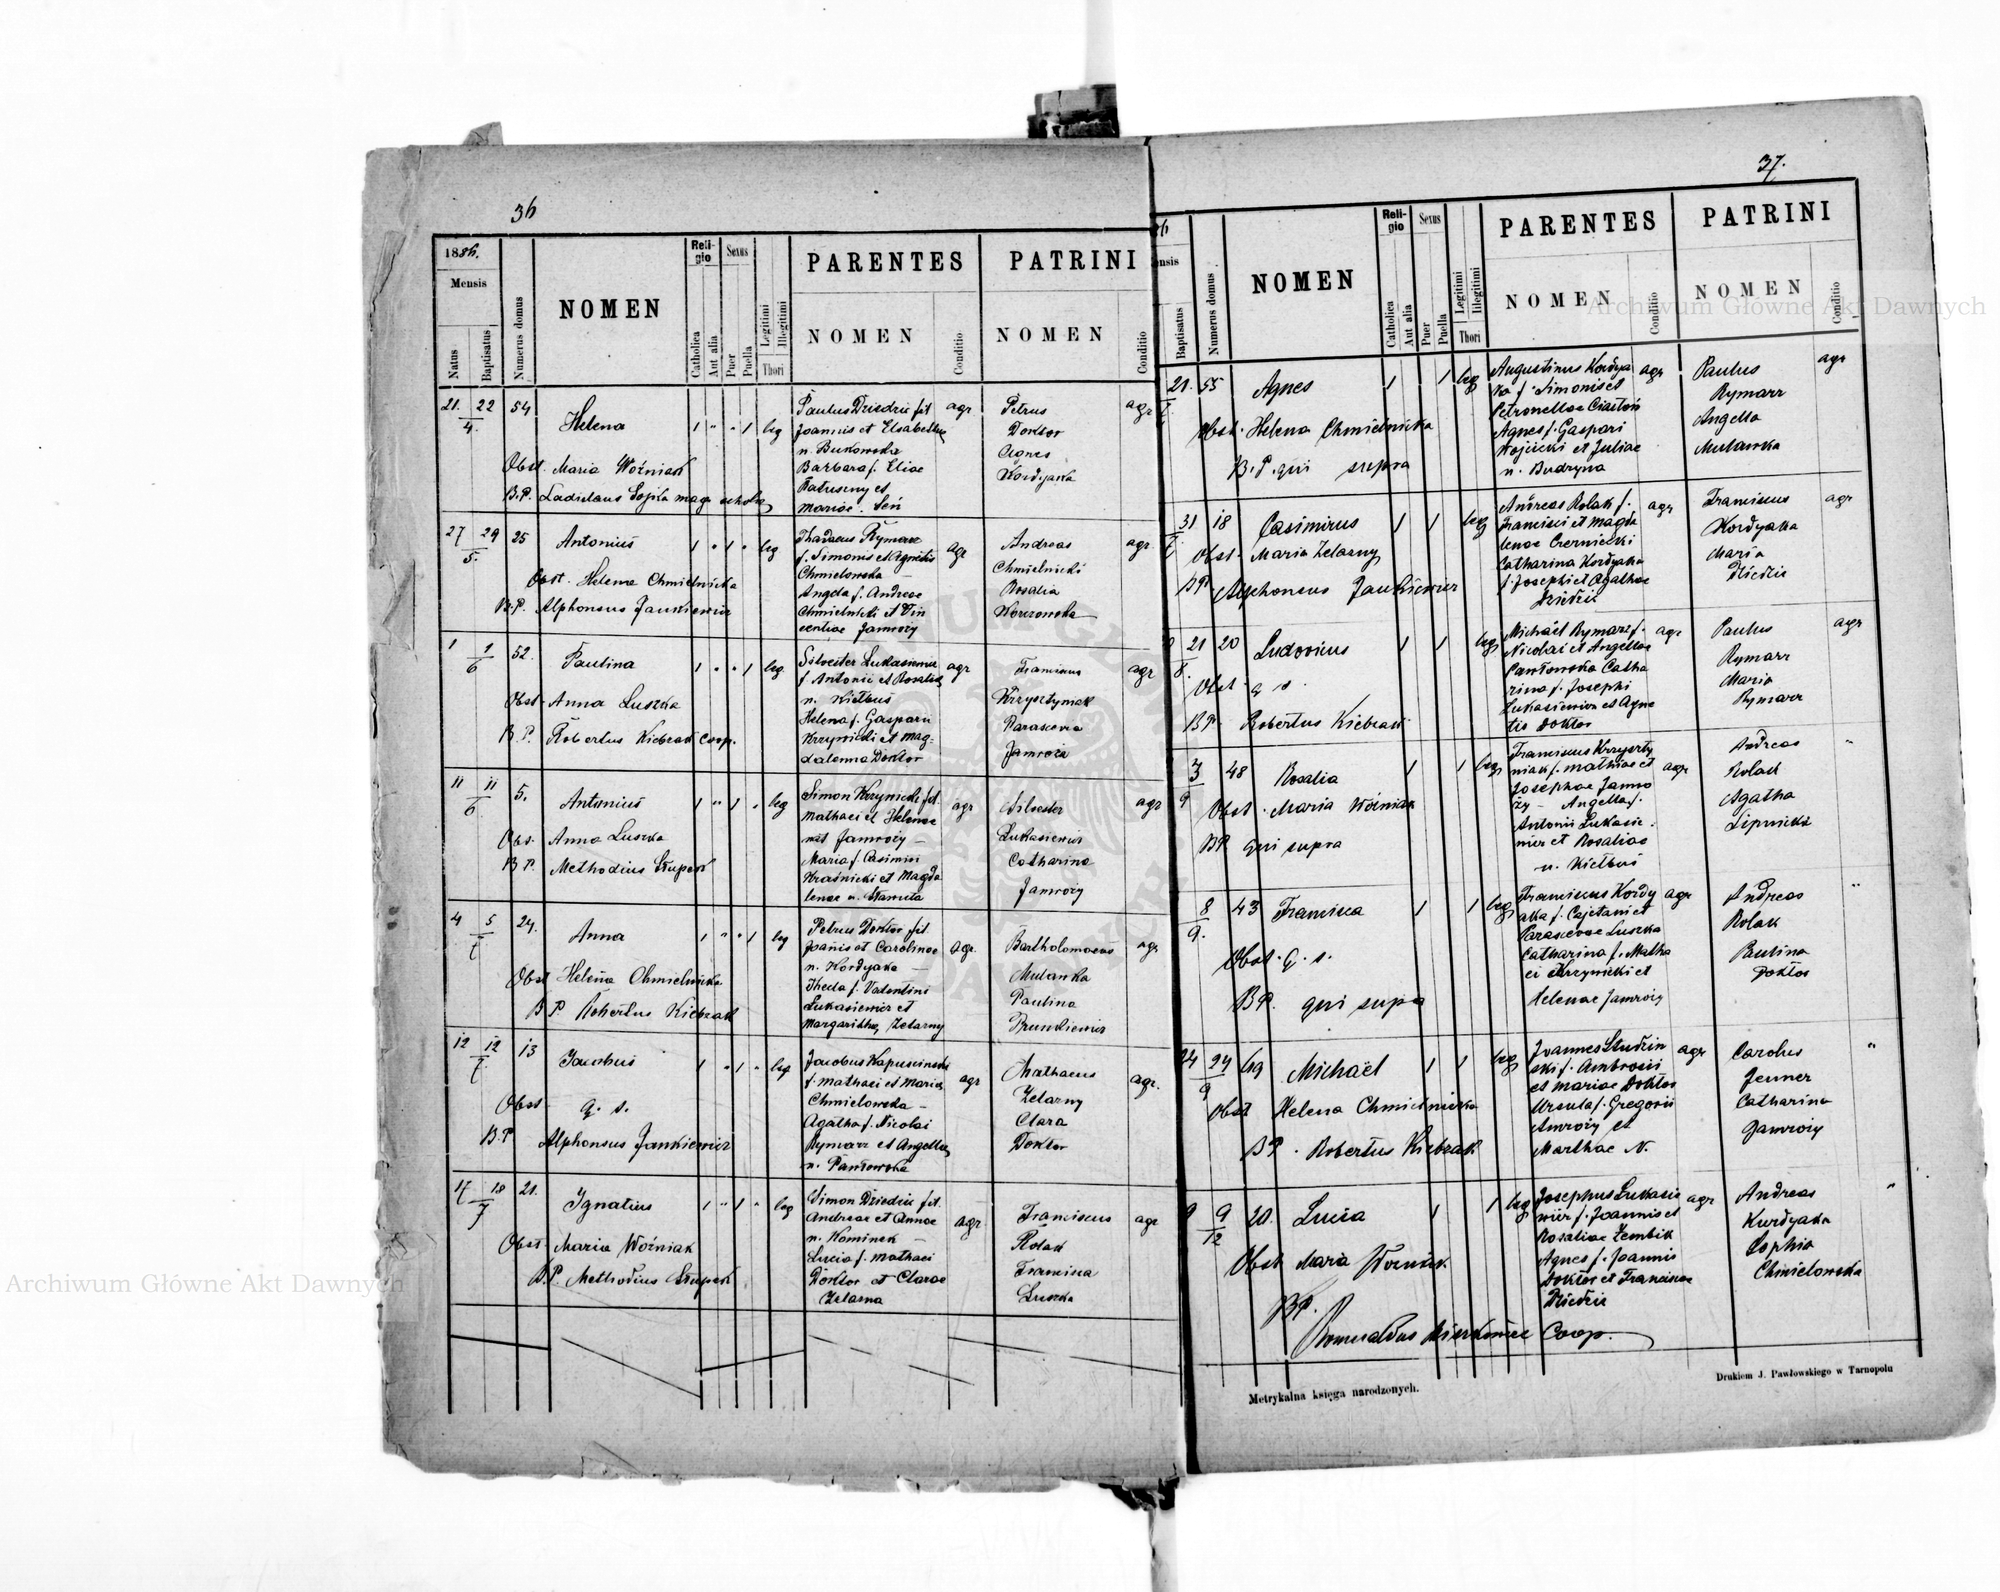 36
1886.
Mensis
Natus
Baptisatus
Numerus domus
NOMEN
Religio
Catholica
Aut alia
Sexus
Puer
Puella
Legitimi
Illegitimi
Thori
PARENTES
NOMEN
Conditio
PATRINI
NOMEN
Conditio
21. 22/4. 54 Helena 1 " " 1 leg
Obst. Maria Woźniak
B.P. Ladislaus
Paulus Dziedzic fil.
Joannis et Elisabethae
n. Bukowska
Barbara f. Eliae
Ratuszny et
Mariae Seń
agr
Petrus
Doktor
Agnes
Kordyaka
agr
27 29/5. 25 Antonius 1 " 1 " leg
Obst. Helena Chmielnicka
B.P. Alphonsus Jankiewicz
Thadaeus Rymarz
f. Simonis et Agnetis
Chmielowska –
Angela f. Andreae
Chmielnicki et Vin
centiae Jamroży
agr
Andreas
Chmielnicki
Rosalia
agr.
1 1/6 52. Paulina 1 " " 1 leg
Obst. Anna Luszka
B.P. Robertus Kiebzak coop.
Silvester Lukasiewicz
f. Antonii et Rosaliae
n. Kiełbus
Helena f. Gaspari
Krzynicki et Mag=
dalenna Doktor
agr
Franciscus
Krzysztyniak
Parascevia
Jamroża
agr
11 11/6 5. Antonius 1 " 1 " leg
Obs. Anna Luszka
B.P. Methodius Słupek
Simon Krzynicki fil.
Mathaei et Helenae
nat Jamroży –
Maria f. Casimiri
Kraśnicki et Magda
lenae n.
agr
Silvester
Lukasiewicz
Catharina
Jamroży
agr
4 5/7 24. Anna 1 " " 1 leg
Obst Helena Chmielnicka
B.P Robertus Kiebzak
Petrus Doktor fil.
Joannis et Carolinae
n. Kordyaka –
Thecla f. Valentini
Lukasiewicz et
Margarithae Zelazny
agr.
Bartholomaeus
Mulawka
Paulina
agr
12 12/7. 13 Jacobus 1 " 1 " leg
Obst q. s.
B.P Alphonsus Jankiewicz
Jacobus Kapuscinski
f. Mathaei et Mariae
Chmielowska –
Agatha f. Nicolai
Rymarz et Angellae
n. Pańkowska
agr
Mathaeus
Zelazny
Clara
Doktor
agr.
17 18/7 21. Ignatius 1 " 1 " leg
Obst. Maria Woźniak
B.P. Methodius Słupek
Simon Dziedzic fil.
Andreae et Annae
n. Kominek –
Lucia f. Mathaei
Doktor et Clarae
Zelazna
agr
Franciscus
Rolak
Francisca
Luszka
agr
37.
Baptisatus
Numerus domus
NOMEN
Religio
Catholica
Aut alia
Sexus
Puer
Puella
Legitimi
Illegitimi
Thori
PARENTES
NOMEN
Conditio
PATRINI
NOMEN
Conditio
21. 55 Agnes 1 1 leg
Obst. Helena Chmielnicka
B.P. qui supra
Augustinus Kordya
ka f. Simonis et
Petronellae Ciastoń
Agnes f. Gaspari
Wojcicki et Juliae
n. Budzyna
agr
Paulus
Rymarz
Angella
Mulawka
agr
31 18 Casimirus 1 1 leg
Obst. Maria Zelazny
BP. Alphonsus Jankiewicz
Andreas Rolak f.
Francisci et Magda
lenae Czerniecki
Catharina Kordyaka
f. Josephi et Agathae
Dziedzic
agr
Franciscus
Kordyaka
Maria
Dziedzic
agr
21/8. 20 Ludovicus 1 1 leg
Obst. q s.
BP. Robertus Kiebzak
Michaël Rymarz f.
Nicolai et Angellae
Pańkowska Catha
rina f. Josephi
Lukasiewicz et Agne
tis Doktor
agr
Paulus
Rymarz
Maria
Rymarz
agr
3/9 48 Rosalia 1 1 leg
Obst. Maria Woźniak
BP qui supra
Franciscus Krzyszty
niak f. Mathiae et
Josephae Jamro
ży – Angella f.
Antonii Lukasie
wicz et Rosaliae
n. Kiełbus
agr
Andreas
Rolak
Agatha
Lipnicka
"
8/9. 43 Francisca 1 1 leg
Obst. q. s.
BP. qui supra
Franciscus Kordy
aka f. Cajetani et
Parasceviae Luszka
Catharina f. Matha
ei Krzynicki et
Helenae Jamroży
agr
Andreas
Rolak
Paulina
Doktor
"
24 24/9 69 Michaël 1 1 leg
Obst Helena Chmielnicka
BP. Robertus Kiebzak
Joannes Studzin
ski f. Ambrosii
et Mariae Doktor
Ursula f. Gregorii
Amroży et
Marthae N.
agr
Carolus
Jenner
Catharina
Jamroży
"
9 9/12 20. Lucia 1 1 leg
Obst Maria Woźniak
BP.
Romualdus Coop.
Josephus Lukasie
wicz f. Joannis et
Rosaliae Zembik
Agnes f. Joannis
Doktor et Franciscae
Dziedzic
agr
Andreas
Kordyaka
Sophia
Chmielowska
"
Metrykalna księga narodzonych.
Drukiem J. Pawłowskiego w Tarnopolu
Archiwum Główne Akt Dawnych
Archiwum Główne Akt Dawnych